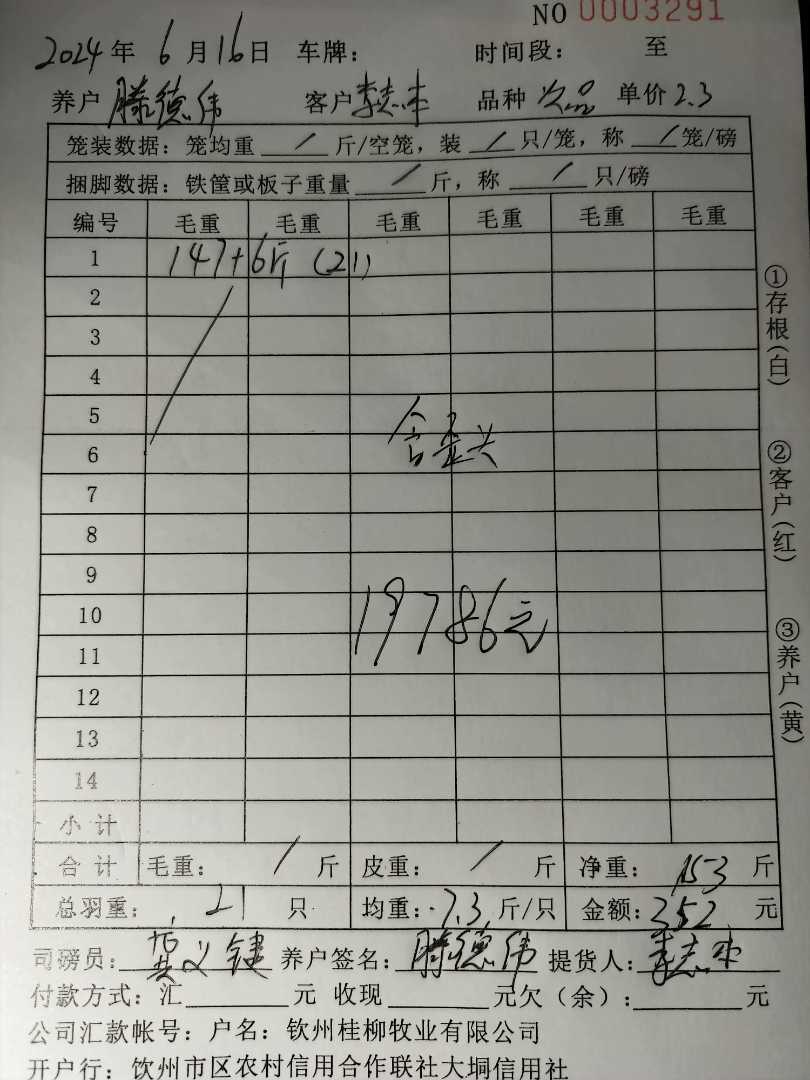 NO 0003291
2024年 6月16日 车牌: 时间段: 至
养户 滕德伟 客户 李志本 品种 次品 单价 2.3
笼装数据: 笼均重 / 斤/空笼, 装 / 只/笼, 称 / 笼/磅
捆脚数据: 铁筐或板子重量 / 斤, 称 / 只/磅
编号 毛重 毛重 毛重 毛重 毛重 毛重
1 147+6斤 (21)
2
3
4
5
6
7
8
9
10 19786元
11
12
13
14
小计
合计 毛重: / 斤 皮重: / 斤 净重: 153 斤
总羽重: 21 只 均重: 7.3 斤/只 金额: 352 元
司磅员: 黄义键 养户签名: 滕德伟 提货人: 李志本
付款方式: 汇 元 收现 元欠(余): 元
公司汇款帐号: 户名: 钦州桂柳牧业有限公司
开户行: 钦州市区农村信用合作联社大垌信用社
①存根(白)
②客户(红)
③养户(黄)